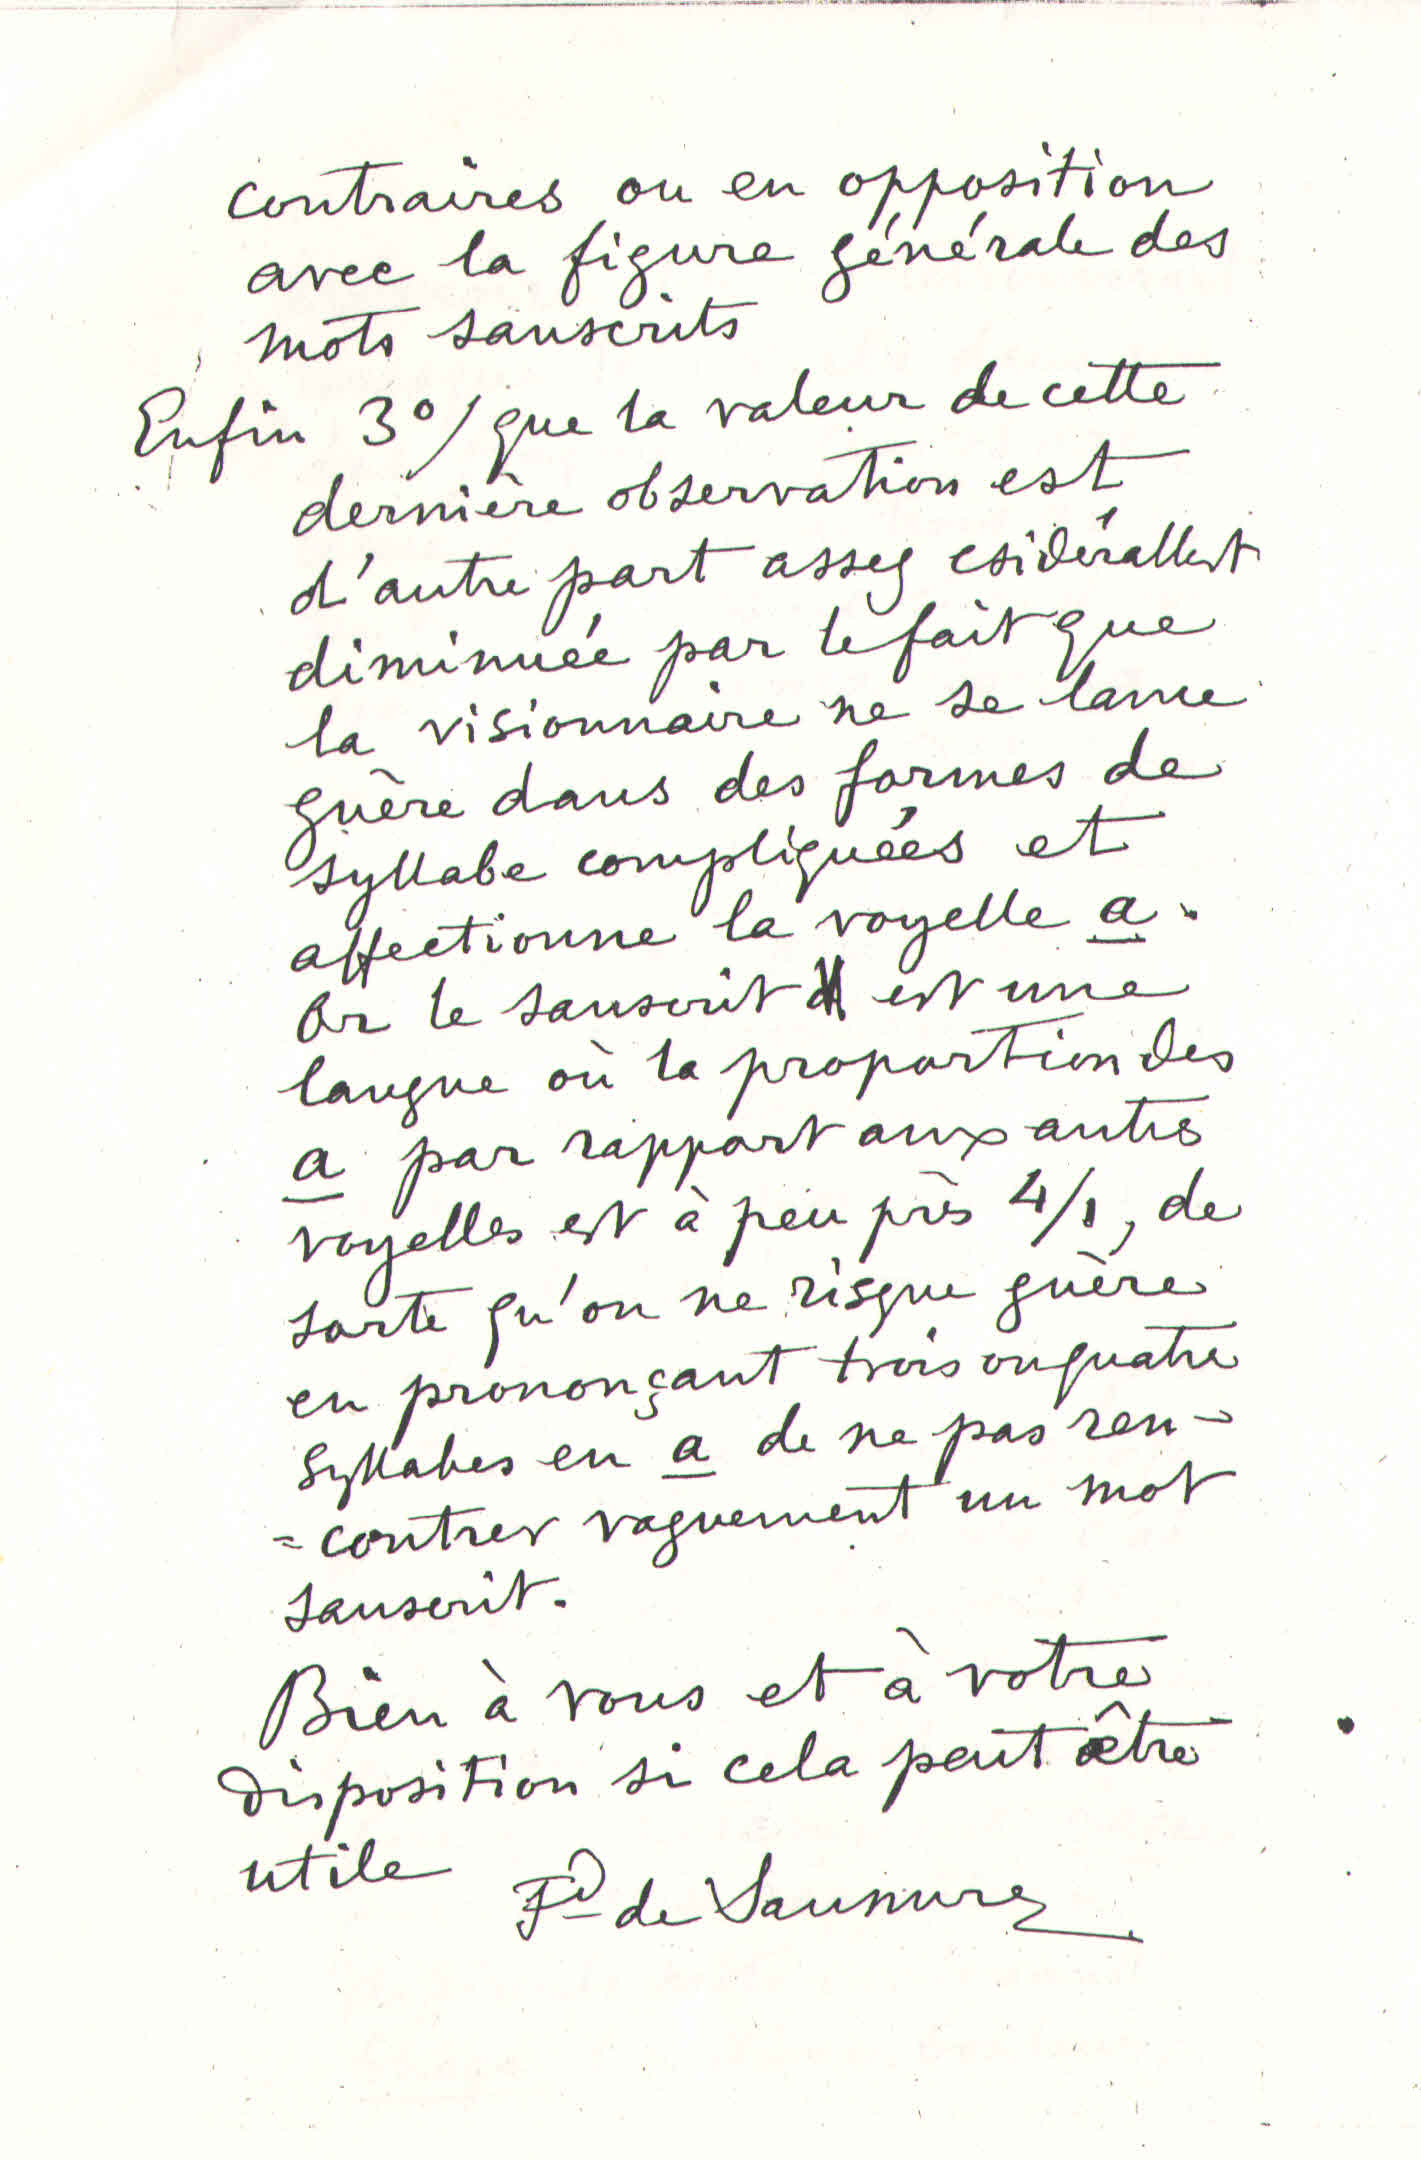 contraires ou en opposition
avec la figure générale des
mots sanscrits
Enfin 3º/ que la valeur de cette
dernière observation est
d'autre part assez csidérallent
diminuée par le fait que
la visionnaire ne se lance
guère dans des formes de
syllabe compliquées et
affectionne la voyelle a.
Or le sanscrit est une
langue où la proportion des
a par rapport aux autres
voyelles est à peu près 4/1, de
sorte qu'on ne risque guère
en prononçant trois ou quatre
syllabes en a de ne pas ren-
=contrer vaguement un mot
sanscrit.
Bien à vous et à votre
disposition si cela peut être
utile
Fd de Saussure